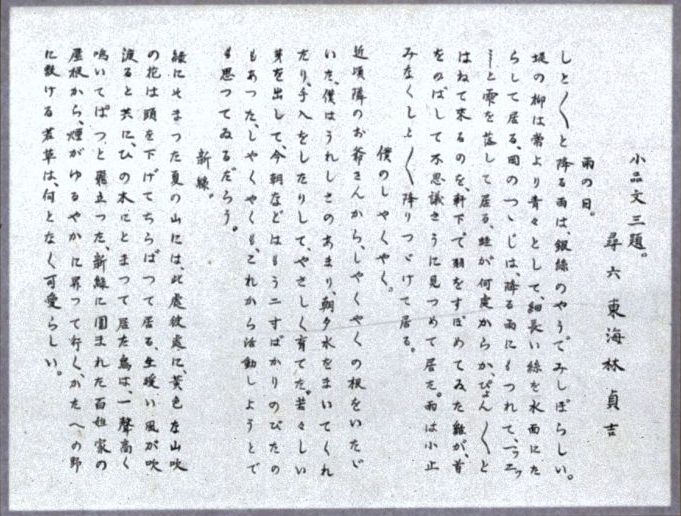 小品文三題。
尋六 東海林貞吉
雨の日。
しと〱と降る雨は、銀線のやうでみしぼらしい。
堤の柳は常より青々として、細長い絲を水面にた
らして居る、田のつゝじは、降る雨にもつれて、
と雫を落して居る、蛙が何處からか、ぴよん〱と
はねて来るのを、軒下で羽をすぼめてゐた雞が、首
をのばして不思議さうに見つめて居た。雨は小止
みなくしと〱降りつゞけて居る。
僕のしやくやく。
近頃隣のお爺さんから、しやくやくの根をいたゞ
いた、僕はうれしさのあまり、朝夕水をまいてくれ
たり、手入をしたりして、やさしく育てた。若々しい
芽を出して、今朝などはもう二寸ばかりのびたの
もあつた、しやくやくも、これから活動しようとで
も思つてゐるだらう。
新緑。
緑にそまつた夏の山には、此處彼處に、黄色な山吹
の花は頭を下げてちらばつて居る、生暖い風が吹
渡ると共に、ひの木にとまつて居た鳥は、一聲高く
鳴いてぱつと飛立つた、新緑に圍まれた百姓家の
屋根から、煙がゆるやかに昇つて行く、かたへの野
に散ける若草は、何となく可愛らしい。